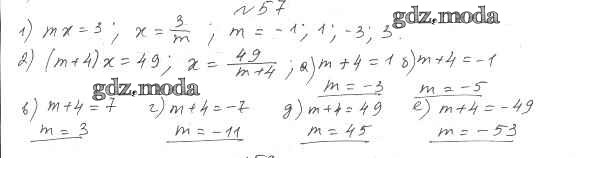 №57
1) mx = 3; x = 3/m; m = -1; 1; -3; 3. gdz.moda
2) (m+4)x = 49; x = 49/(m+4); а) m+4 = 1 б) m+4 = -1
gdz.moda m = -3 m = -5
в) m+4 = 7 г) m+4 = -7 д) m+4 = 49 е) m+4 = -49
m = 3 m = -11 m = 45 m = -53